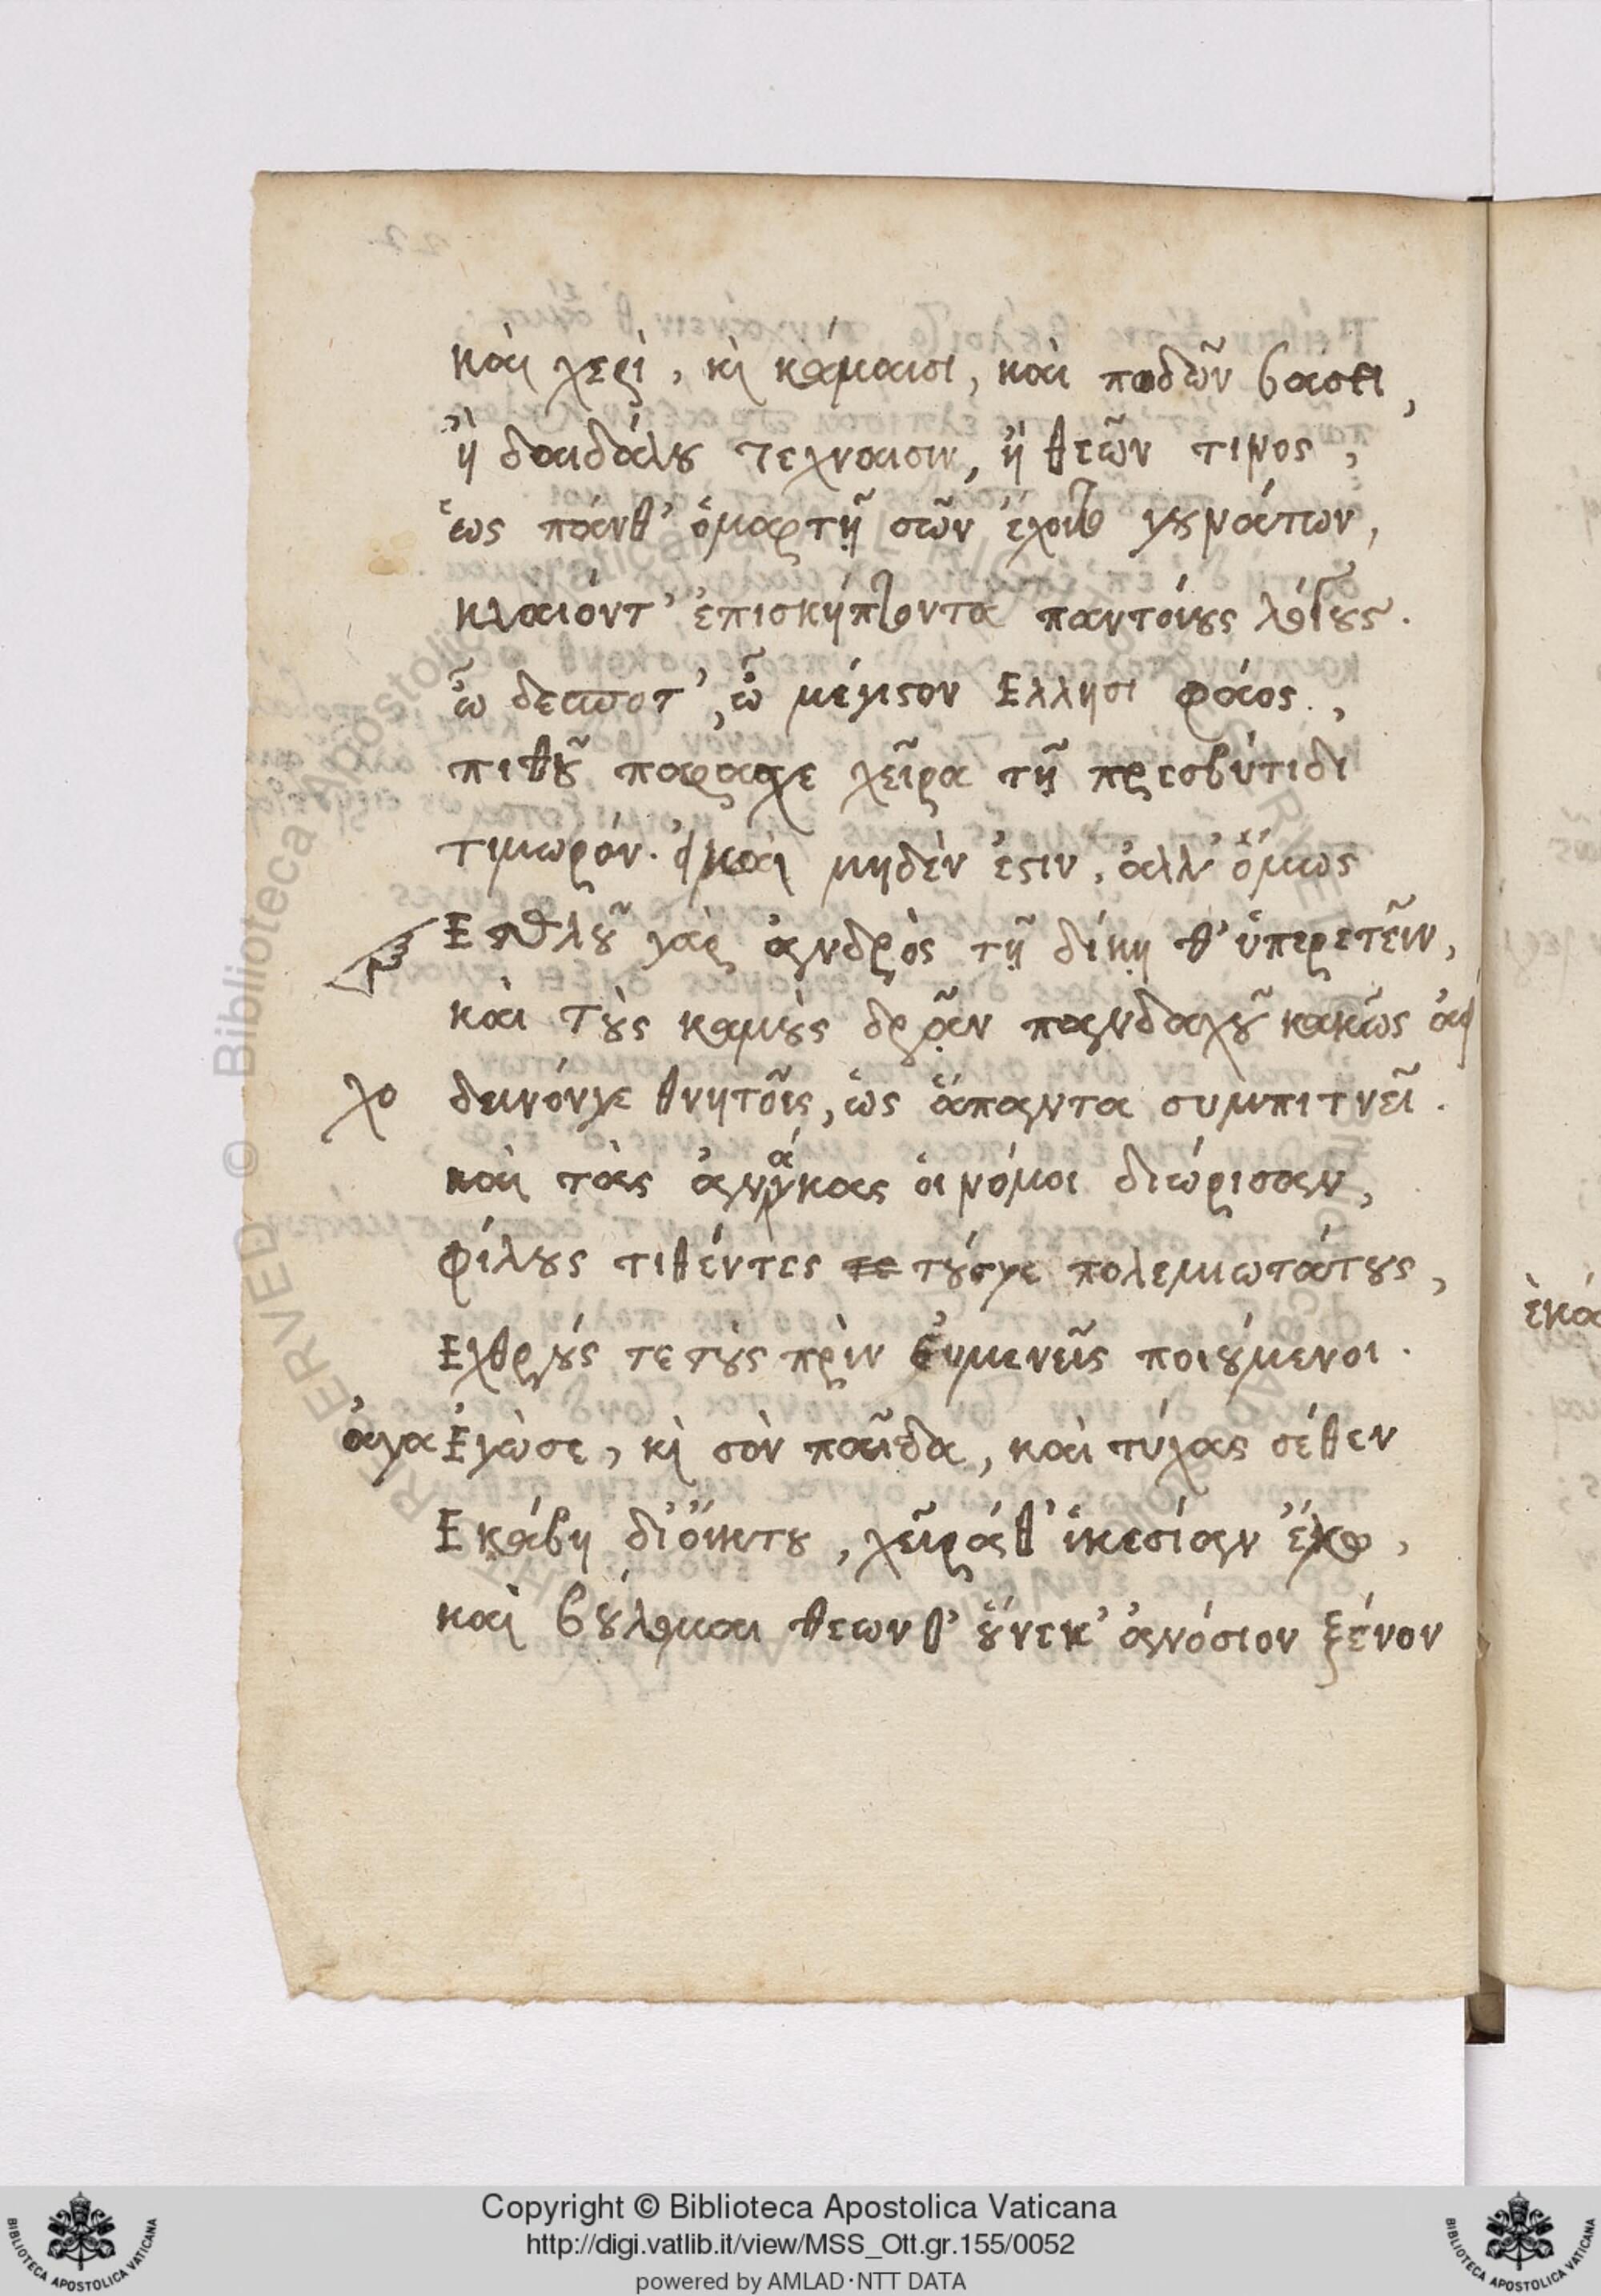 καὶ χερὶ, κὶ κόμαισι, καὶ ποδῶν βάσει,
ἢ δαιδάλου τεχναισιν, ἢ θεῶν τινος,
ἑως πάνθ' ὁμαρτῆ σῶν ἐχοιτο γουνάτων,
κλαιόντ' ἐπισκήπτοντα παντόιους λόγους.
ὦ δεσποτ', ὦ μέγιστον Ελλησι φάος,
πιθοῦ παρασχε χεῖρα τῆ πρεσβύτιδι
τιμωρόν. εἰ καὶ μηδὲν ἐστιν, ἀλλ' ὅμως
Εσθλοῦ γὰρ ἀνδρὸς τῆ δίκη θ' ὑπερετεῖν,
καὶ τοὺς κακοὺς δρᾶν πανδαχοῦ κακῶς ἀεί
χο δεινόνγε θνητοῖς, ὡς ἅπαντα συμπιτνεῖ.
καὶ τὰς ἀνάγκας ὁι νόμοι διώρισαν,
φίλους τιθέντες τούσγε πολεμιωτάτους,
Εχθρούς τε τοὺς πρὶν ἐυμενεῖς ποιούμενοι.
ἀγα Ἐγὼσε, κὶ σὸν παῖδα, καὶ τύχας σέθεν
Εκάβη δι' ὄικτου, χεῖράθ' ἱκεσίαν ἔχω,
καὶ βούλομαι θεων θ' ὅυνεκ' ἀνόσιον ξένον
ἑκά
Copyright © Biblioteca Apostolica Vaticana
http://digi.vatlib.it/view/MSS_Ott.gr.155/0052
powered by AMLAD·NTT DATA
BIBLIOTECA APOSTOLICA VATICANA
BIBLIOTECA APOSTOLICA VATICANA